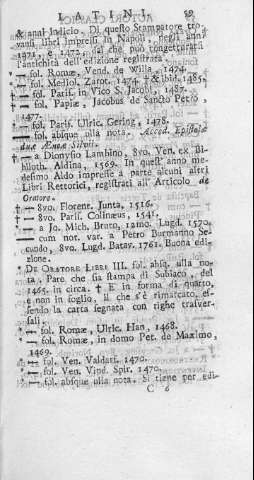 LATINI. 59
& anni Indicio. Di questo Stampatore tro-
vansi libri Impressi in Napoli, negli anni
1471, e 1472, dal che può congetturarsi
l'antichità dell'edizione registrata.
* — fol. Romæ, Vend. de Willa, 1474.
† — fol. Mediol. Zarot. 1474 † & ibid. 1485.
† — fol. Parisi. in Vico S. Jacobi, 1487.
† — fol. Papiæ, Jacobus de Sancto Petro,
1477.
* — fol. Parisi. Ulric. Gering, 1478.
* — fol. absque ulla nota. Acced. Epistolæ
duæ Æneæ Silvii.
† — a Dionysio Lambino, 8vo. Ven. ex Bi-
blioth. Aldina, 1569. In quest' anno me-
desimo Aldo impresse a parte alcuni altri
Libri Rettorici, registrati all' Articolo de
Oratore.
† — 8vo. Florent. Junta, 1516.
† — 8vo. Parisi. Colinæus, 1541.
† — a Jo. Mich. Bruto, 12mo. Lugd. 1570.
— cum not. var. a Petro Burmanno Se-
cundo, 8vo. Lugd. Batav. 1761. Buona edi-
zione.
* De Oratore Libri III. fol. absq. ulla no-
ta. Pare che sia stampa di Subiaco, del
1465. in circa. † E in forma di quarto,
e non in foglio, il che s'è rimarcato, es-
sendo la carta segnata con righe trasver-
sali.
* — fol. Romæ, Ulric. Han, 1468.
* — fol. Romæ, in domo Pet. de Maximo,
1469.
* — fol. Ven. Valdarf. 1470.
* — fol. Ven. Vind. Spir. 1470.
* — fol. absque ulla nota. Si tiene per edi-
C 6